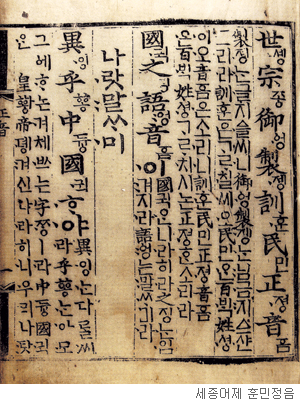 世솅宗조ᇰ御ᅌᅥᆼ製졩訓훈民민正져ᇰ音ᅙᅳᆷ
製졩ᄂᆞᆫ글지ᅀᅳᆯ씨니御ᅌᅥᆼ製졩ᄂᆞᆫ님금지ᅀᅳ샨
그리라訓훈은ᄀᆞᄅᆞ칠씨오民민ᄋᆞᆫ百ᄇᆡᆨ姓셔ᇰ
이오音ᅙᅳᆷ은소리니訓훈民민正져ᇰ音ᅙᅳᆷ
은百ᄇᆡᆨ姓셔ᇰᄀᆞᄅᆞ치시논正져ᇰᄒᆞᆫ소리라
國귁之징語ᅌᅥᆼ音ᅙᅳᆷ이
國귁ᄋᆞᆫ나라히라之징ᄂᆞᆫ입
겨지라語ᅌᅥᆼᄂᆞᆫ말ᄊᆞ미라
나랏말ᄊᆞ미
異잉乎ᅘᅩᆼ中듀ᇰ國귁ᄒᆞ야
異잉ᄂᆞᆫ다ᄅᆞᆯ씨
라乎ᅘᅩᆼᄂᆞᆫ아모
그ᅌᅦᄒᆞ논겨체ᄡᅳᄂᆞᆫ字ᄍᆞᆼㅣ라中듀ᇰ國귁
ᄋᆞᆫ皇ᅘᅪᇰ帝뎽겨신나라히니우리나랏
正音
세종어제 훈민정음